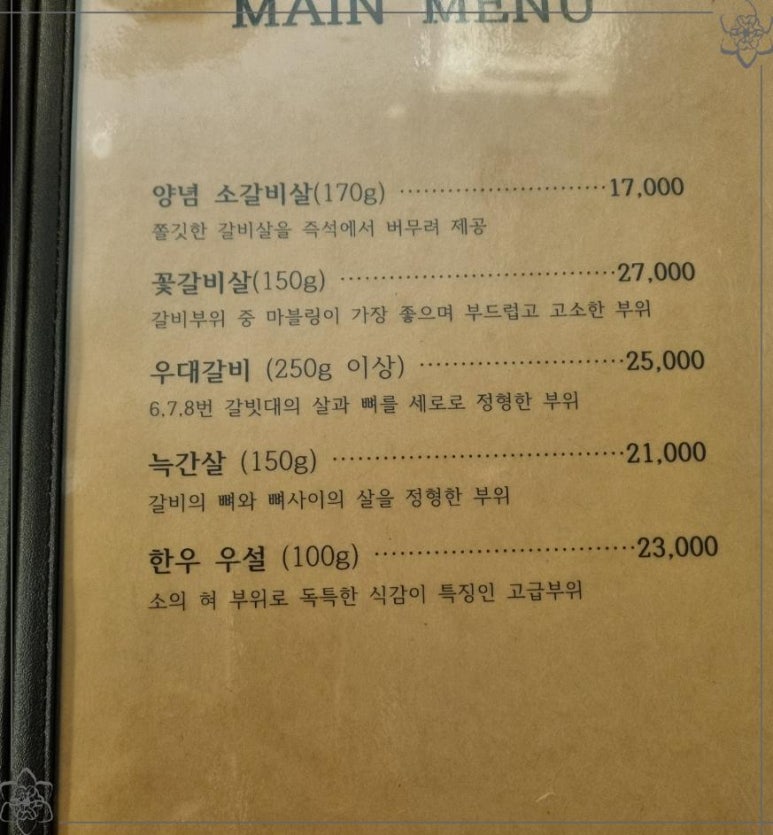 MAIN MENU
양념 소갈비살(170g) ··························17,000
쫄깃한 갈비살을 즉석에서 버무려 제공
꽃갈비살(150g) ··································27,000
갈비부위 중 마블링이 가장 좋으며 부드럽고 고소한 부위
우대갈비 (250g 이상) ·························25,000
6,7,8번 갈빗대의 살과 뼈를 세로로 정형한 부위
늑간살 (150g) ···································21,000
갈비의 뼈와 뼈사이의 살을 정형한 부위
한우 우설 (100g) ································23,000
소의 혀 부위로 독특한 식감이 특징인 고급부위